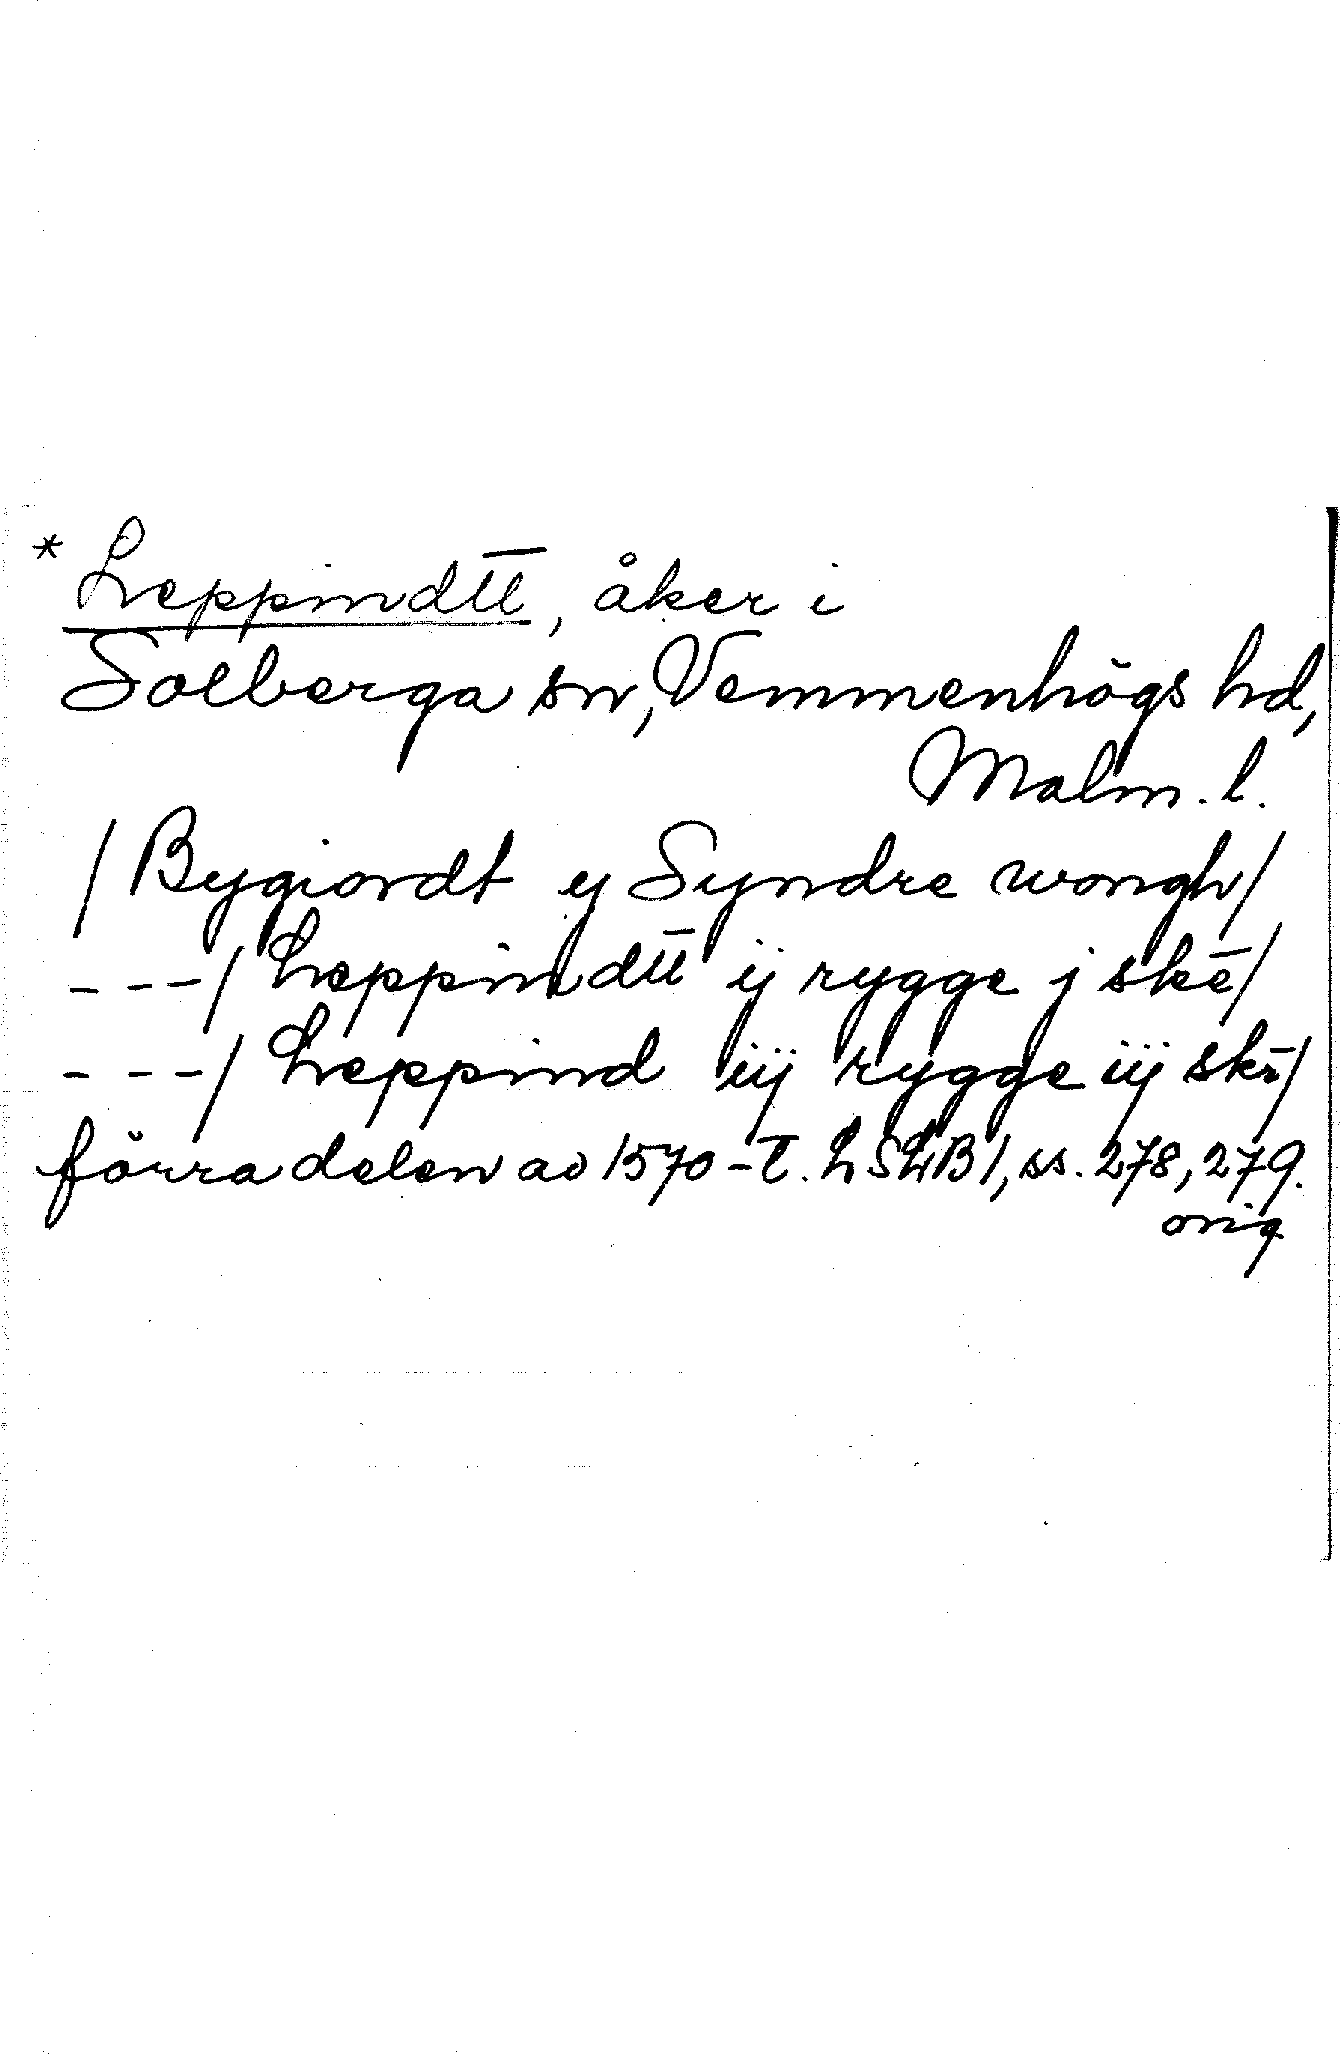 * Leppindtt̅, åker i
Solberga sn, Vemmenhögs hd,
Malm. l.
/ Bygiordt ij Syndre wongh/
- - - / Leppindtt̅ ij rygge j skē/
- - - / Leppind iij rygge iij sk̄r/
förra delen av 1570-t. LSLB 1, ss. 278, 279.
orig